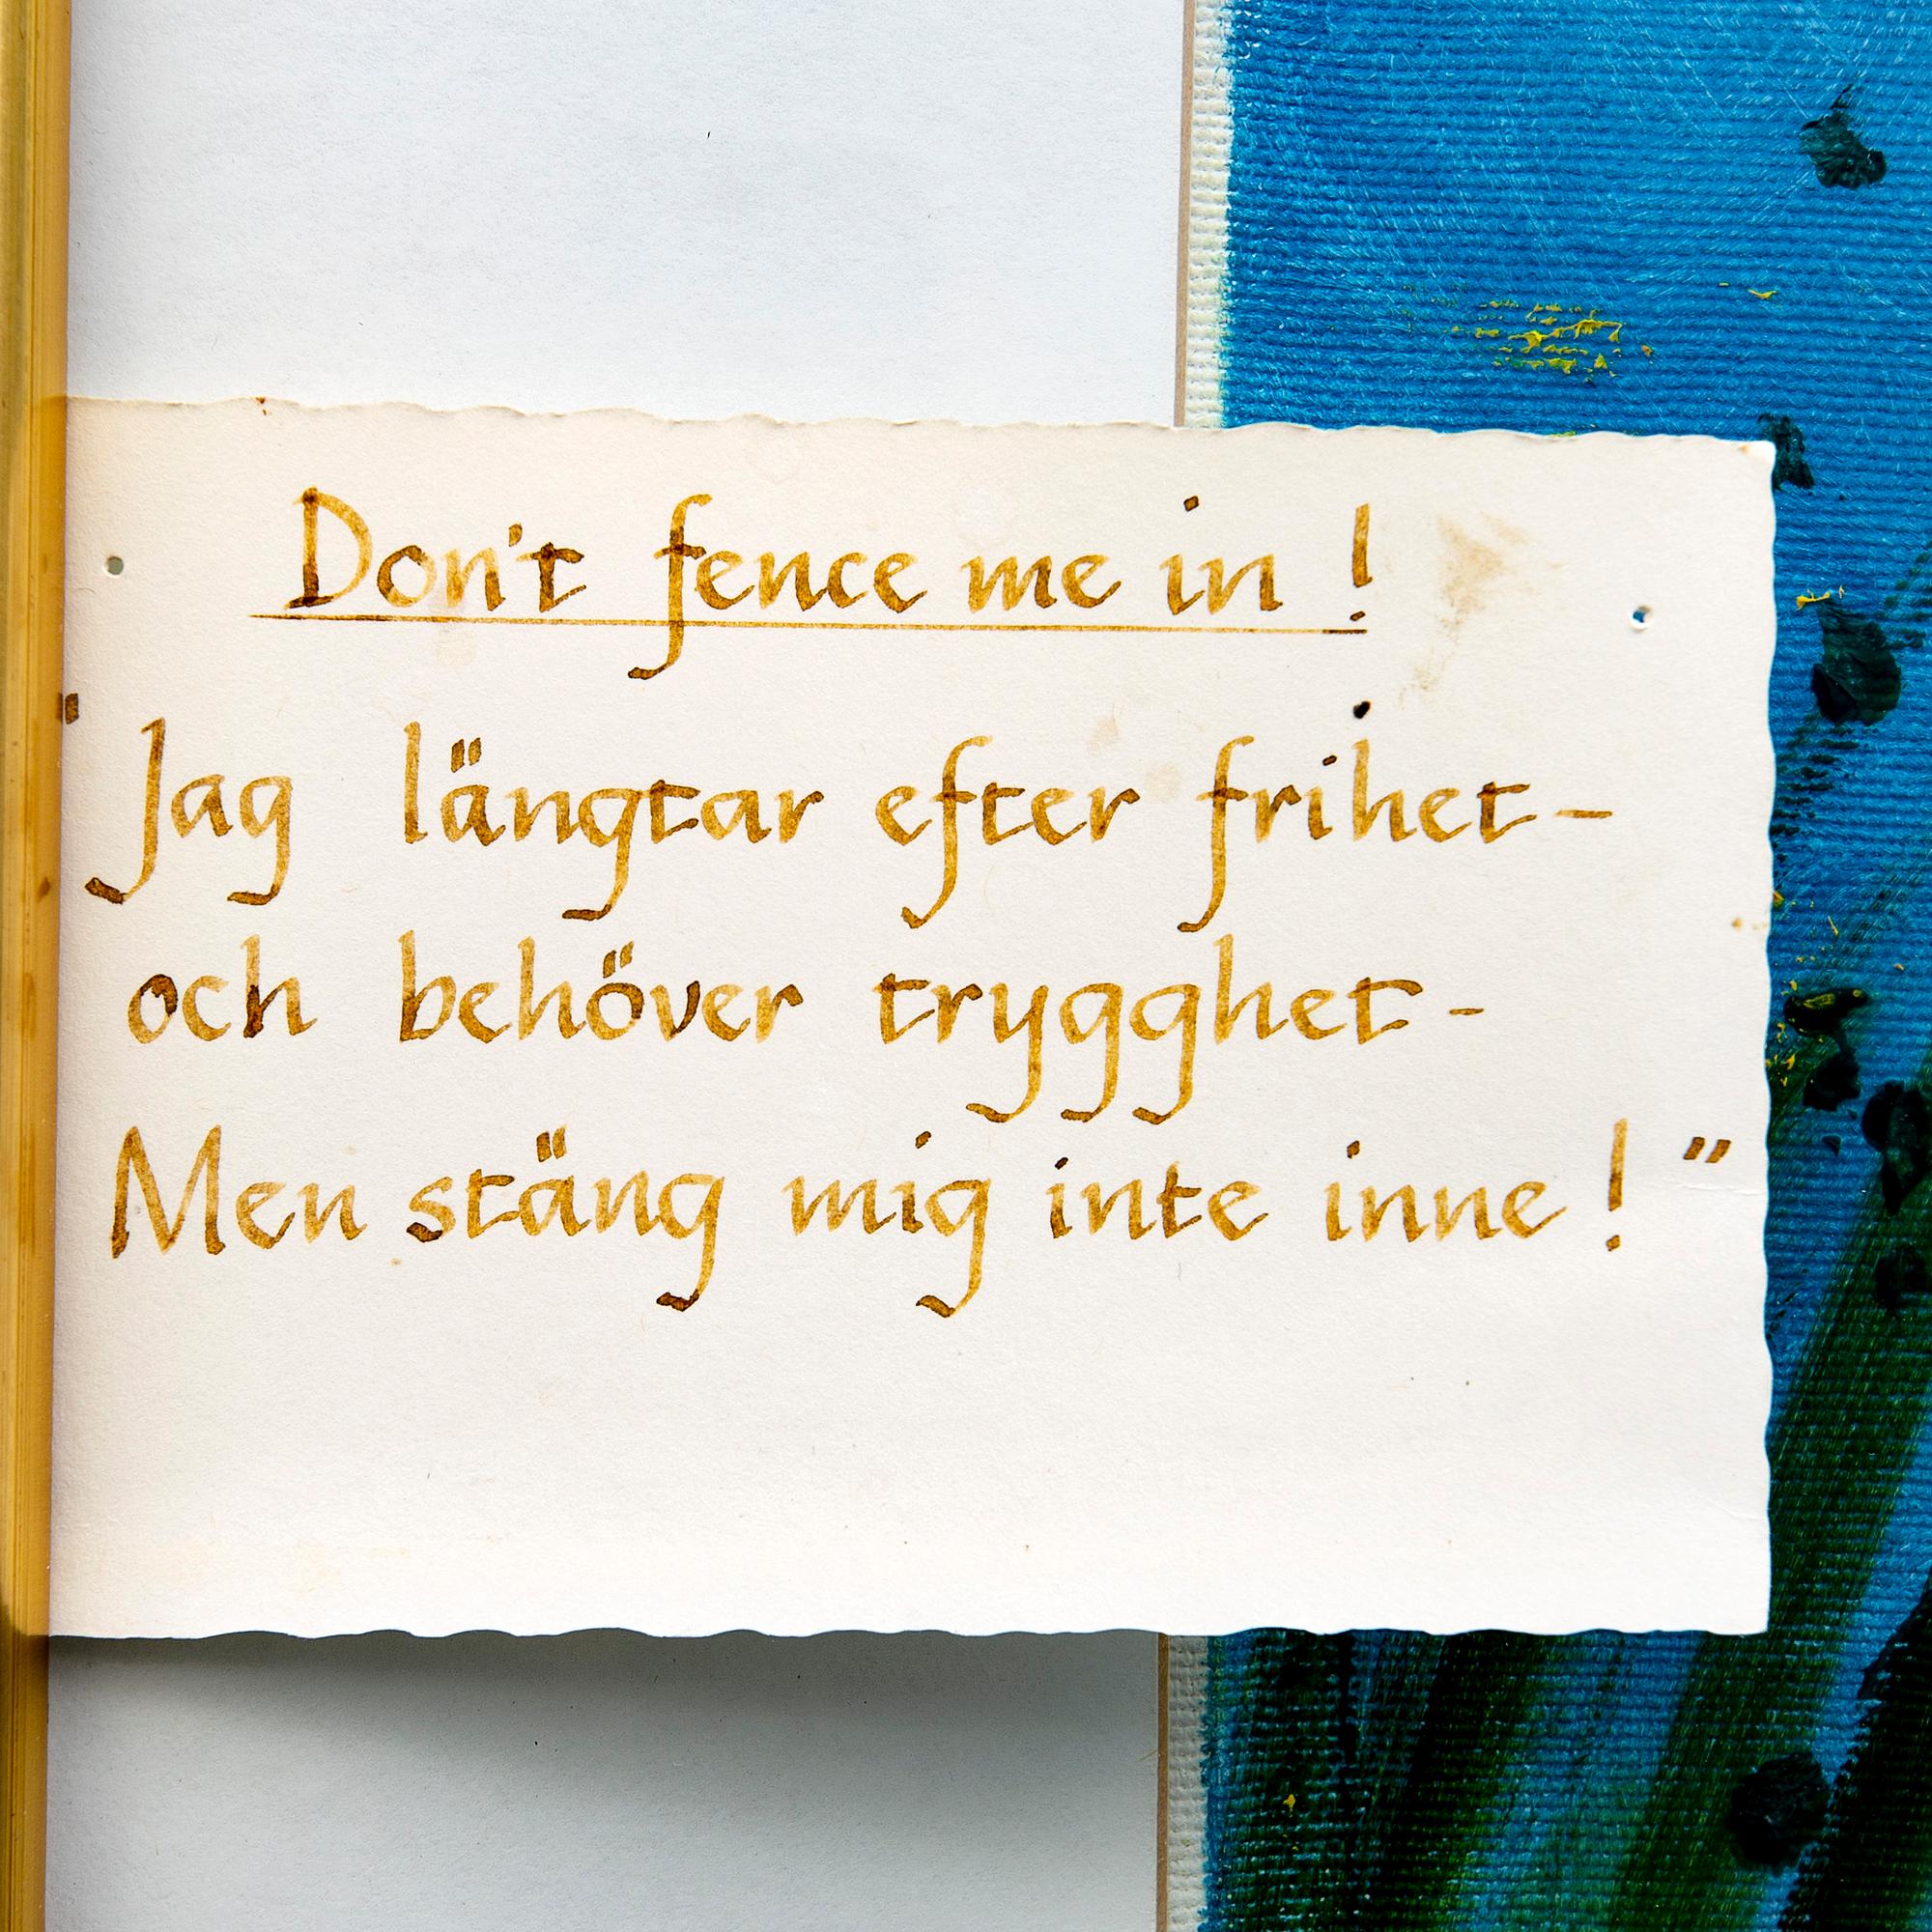 Don't fence me in !
"Jag längtar efter frihet-
och behöver trygghet-
Men stäng mig inte inne ! "